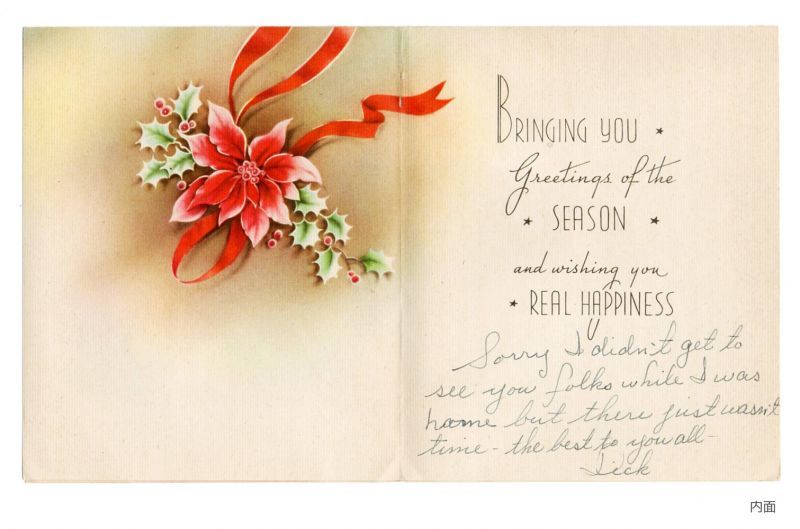 BRINGING YOU
Greetings of the
SEASON
and wishing you
REAL HAPPINESS
Sorry I didn't get to
see you folks while I was
home but there just wasn't
time - the best to you all -
Dick
内面